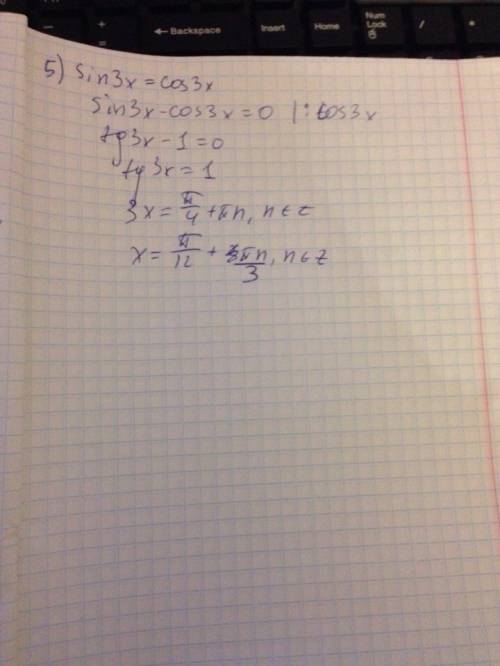 ← Backspace
Insert
Home
Num Lock
/
*
-
+
=
5) sin3x = cos3x
sin3x - cos3x = 0 | : cos3x
tg3x - 1 = 0
tg3x = 1
3x = π/4 + πn, n ∈ z
x = π/12 + πn/3, n ∈ z